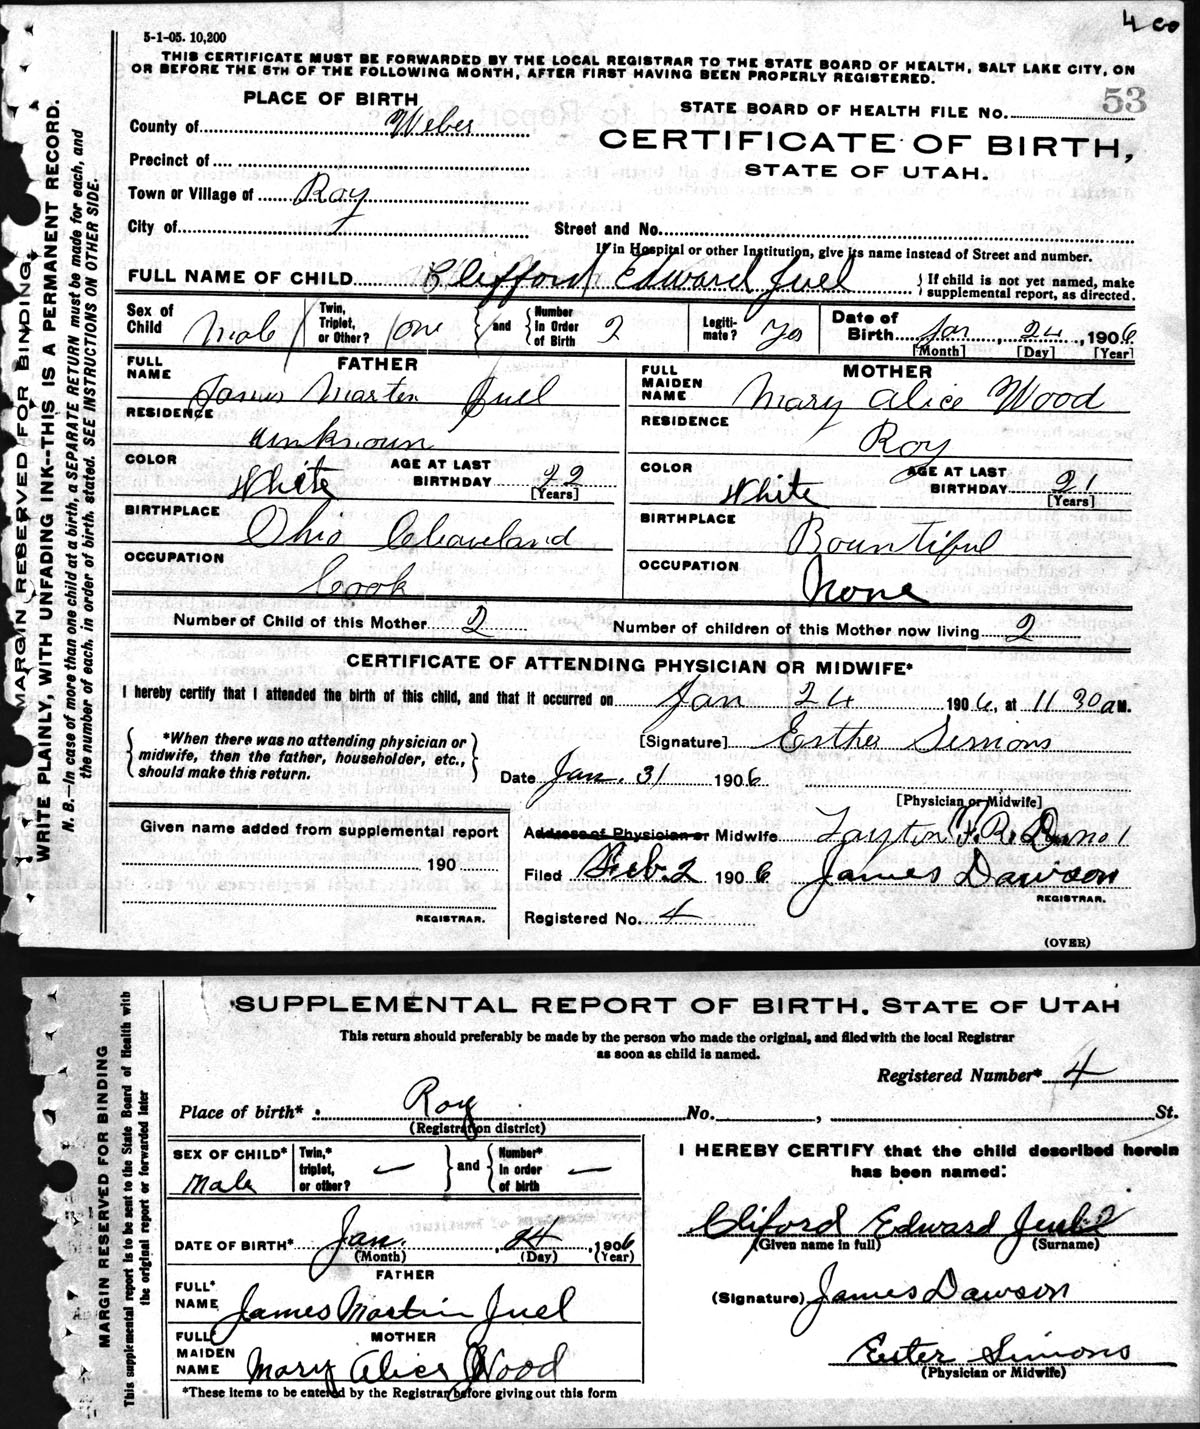 4 co
5-1-05. 10,200
THIS CERTIFICATE MUST BE FORWARDED BY THE LOCAL REGISTRAR TO THE STATE BOARD OF HEALTH, SALT LAKE CITY, ON
OR BEFORE THE 5TH OF THE FOLLOWING MONTH, AFTER FIRST HAVING BEEN PROPERLY REGISTERED.
PLACE OF BIRTH
STATE BOARD OF HEALTH FILE No. 53
County of Weber
CERTIFICATE OF BIRTH,
STATE OF UTAH.
Precinct of
Town or Village of Roy
City of Street and No.
If in Hospital or other Institution, give its name instead of Street and number.
FULL NAME OF CHILD Clifford Edward Juel } If child is not yet named, make supplemental report, as directed.
Sex of Child Male Twin, Triplet, or Other? one } and { Number in Order of Birth 2 Legiti-mate? Yes Date of Birth Jan, 24, 1906
[Month] [Day] [Year]
FATHER
FULL NAME James Martin Juel
RESIDENCE unknown
COLOR White AGE AT LAST BIRTHDAY 22
[Years]
BIRTHPLACE Ohio Cleaveland
OCCUPATION Cook
MOTHER
FULL MAIDEN NAME Mary Alice Wood
RESIDENCE Roy
COLOR White AGE AT LAST BIRTHDAY 21
[Years]
BIRTHPLACE Bountiful
OCCUPATION None
Number of Child of this Mother 2 Number of children of this Mother now living 2
CERTIFICATE OF ATTENDING PHYSICIAN OR MIDWIFE*
I hereby certify that I attended the birth of this child, and that it occurred on Jan 24 1906, at 11 30 a M.
{ *When there was no attending physician or midwife, then the father, householder, etc., should make this return. }
[Signature] Esther Simons
Date Jan. 31 1906
[Physician or Midwife]
Given name added from supplemental report
190
REGISTRAR.
Address of Physician or Midwife Layton F. R. D. no 1
Filed Feb. 2 1906 James Dawson
REGISTRAR.
Registered No. 4
(OVER)
MARGIN RESERVED FOR BINDING.
WRITE PLAINLY, WITH UNFADING INK--THIS IS A PERMANENT RECORD.
N. B.—In case of more than one child at a birth, a SEPARATE RETURN must be made for each, and
the number of each, in order of birth, stated. SEE INSTRUCTIONS ON OTHER SIDE.
SUPPLEMENTAL REPORT OF BIRTH, STATE OF UTAH
This return should preferably be made by the person who made the original, and filed with the local Registrar
as soon as child is named.
Registered Number* 4
Place of birth* Roy No. , St.
(Registration district)
SEX OF CHILD* Male Twin,* triplet, or other? — } and { Number* in order of birth —
DATE OF BIRTH* Jan. , 24 , 1906
(Month) (Day) (Year)
FATHER
FULL* NAME James Martin Juel
MOTHER
FULL MAIDEN NAME Mary Alice Wood
*These items to be entered by the Registrar before giving out this form
I HEREBY CERTIFY that the child described herein
has been named:
Cliford Edward Juel
(Given name in full) (Surname)
(Signature) James Dawson
Ester Simons
(Physician or Midwife)
MARGIN RESERVED FOR BINDING
This supplemental report is to be sent to the State Board of Health with
the original report or forwarded later